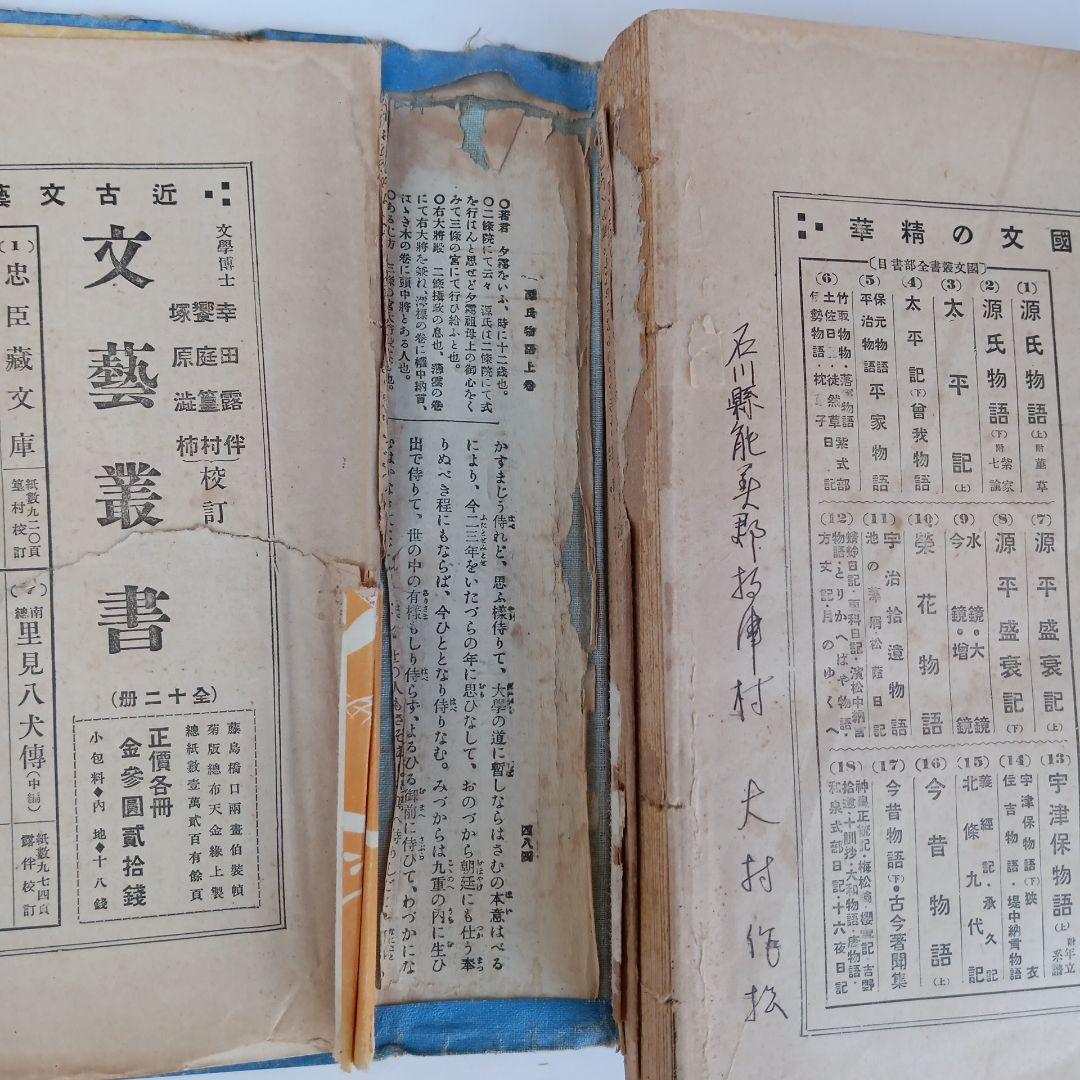 國文の精華
國文叢書全部書目
(1) 源氏物語(上)附董草
(2) 源氏物語(下)附紫家七論
(3) 太平記(上)
(4) 太平記(下)曾我物語
(5) 保元物語 平治物語 平家物語
(6) 竹取物語・落 物語 紫式部 土佐日 ・徒然草 日記 伊勢物語・枕 子
(7) 源平盛衰記(上)
(8) 源平盛衰記(下)
(9) 水鏡・大鏡 今鏡・增鏡
(10) 榮花物語
(11) 宇治拾遺物語 池の藻屑 松蔭日記
(12) 蜻蛉日記・更科日記・濱松中納言物語・とりかへばや物語・方丈記・月のゆくへ
(13) 宇津保物語(上)附年立系譜
(14) 宇津保物語(下)狹衣 住吉物語・堤中納言物語
(15) 義經記・承久記 北條九代記
(16) 今昔物語(上)
(17) 今昔物語(下)・古今著聞集
(18) 神皇正統記・梅松論・櫻雲記・吉野拾遺・十訓抄・大和物語・唐物語・和泉式部日記・十六夜日記
石川縣能美郡 津村 大村作松
源氏物語上卷
四八四
〇若君 夕霧をいふ、時に十二歳也。
〇二條院にて云々 源氏は二條院にて式
を行はんと思せど夕霧祖母上の御心をく
みて三條の宮にて行ひ給ふと也。
〇右大將殿 二條攝政の息也、薄雲の卷
にて右大將を兼れ、澪標の卷に權中納言、
はゝき木の卷に頭中將とある人也。
かすまじう侍れど、思ふ樣侍りて、大學の道に暫しならはさむの本意はべる
により、今二三年をいたづらの年に思ひなして、おのづから朝廷にも仕う奉
りぬべき程にもならば、今ひととなり侍りなむ。みづからは九重の内に生ひ
出で侍りて、世の中の有樣もしり侍らず、よるひる御前に侍ひて、わづかにな
近古文藝
文學博士
幸田露伴
饗庭篁村
塚原澁柿
校訂
文藝叢書
(全十二册)
藤島橋口兩畫伯裝幀
菊版總布天金緣上製
總紙數壹萬貳百有餘頁
正價各冊
金參圓貳拾錢
小包料◆内地◆十八錢
(1) 忠臣藏文庫
紙數九二〇頁
篁村校訂
南總里見八犬傳(中編)
紙數九七四頁
露伴校訂